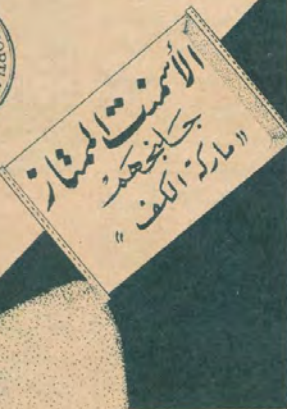 الأسمنت الممتاز
جلنجهم
"ماركة الكف"